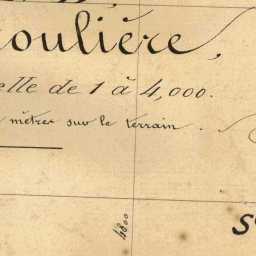 oulière,
elle de 1 à 4,000.
mètres sur le terrain.
4800
S